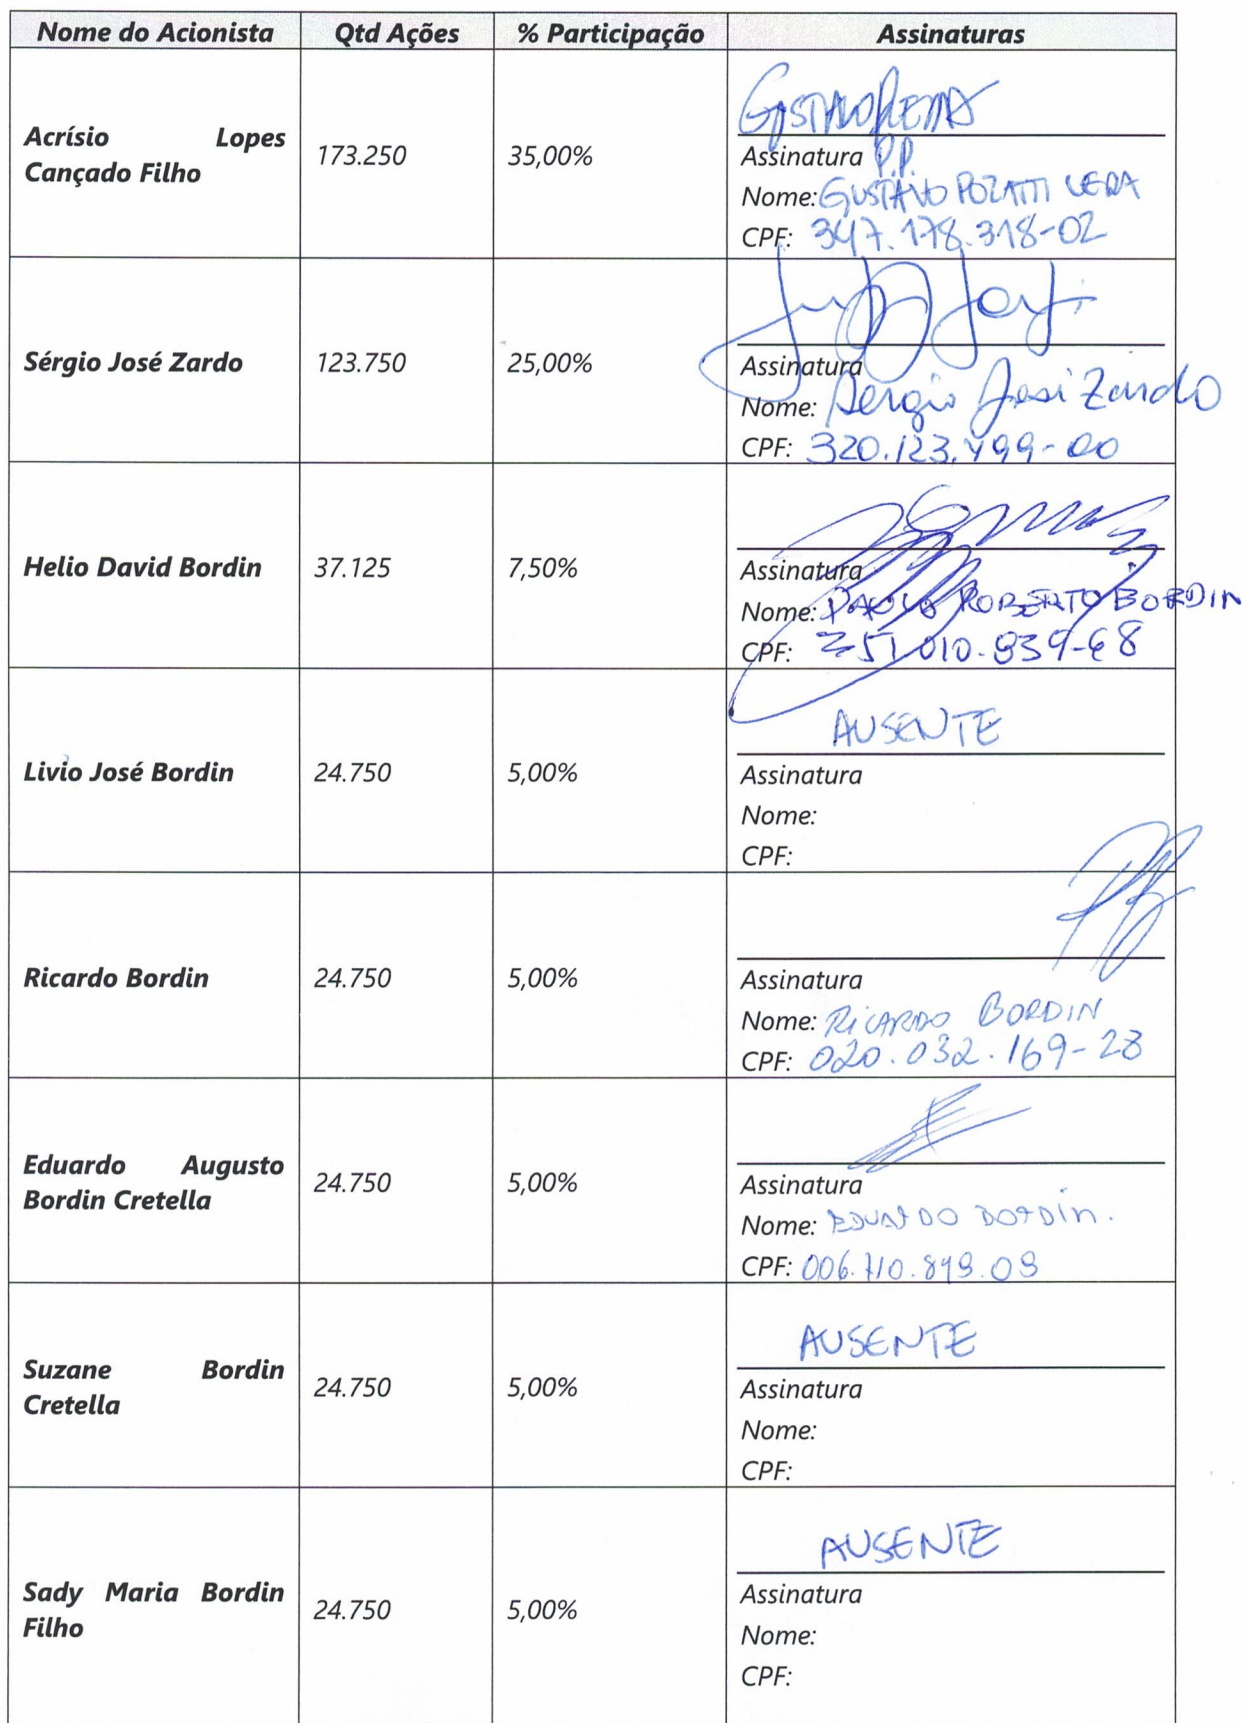 Nome do Acionista Qtd Ações % Participação Assinaturas
Acrísio Lopes
Cançado Filho
173.250
35,00%
Assinatura P.P.
Nome: GUSTAVO POZATTI
CPF: 347.178.318-02
Sérgio José Zardo
123.750
25,00%
Assinatura
Nome: Sergio José Zardo
CPF: 320.123.499-00
Helio David Bordin
37.125
7,50%
Assinatura
Nome: PAULO ROBERTO BORDIN
CPF:
Livio José Bordin
24.750
5,00%
AUSENTE
Assinatura
Nome:
CPF:
Ricardo Bordin
24.750
5,00%
Assinatura
Nome: RICARDO BORDIN
CPF: 020.032.169-28
Eduardo Augusto
Bordin Cretella
24.750
5,00%
Assinatura
Nome: EDUARDO BORDIN.
CPF:
Suzane Bordin
Cretella
24.750
5,00%
AUSENTE
Assinatura
Nome:
CPF:
Sady Maria Bordin
Filho
24.750
5,00%
AUSENTE
Assinatura
Nome:
CPF: